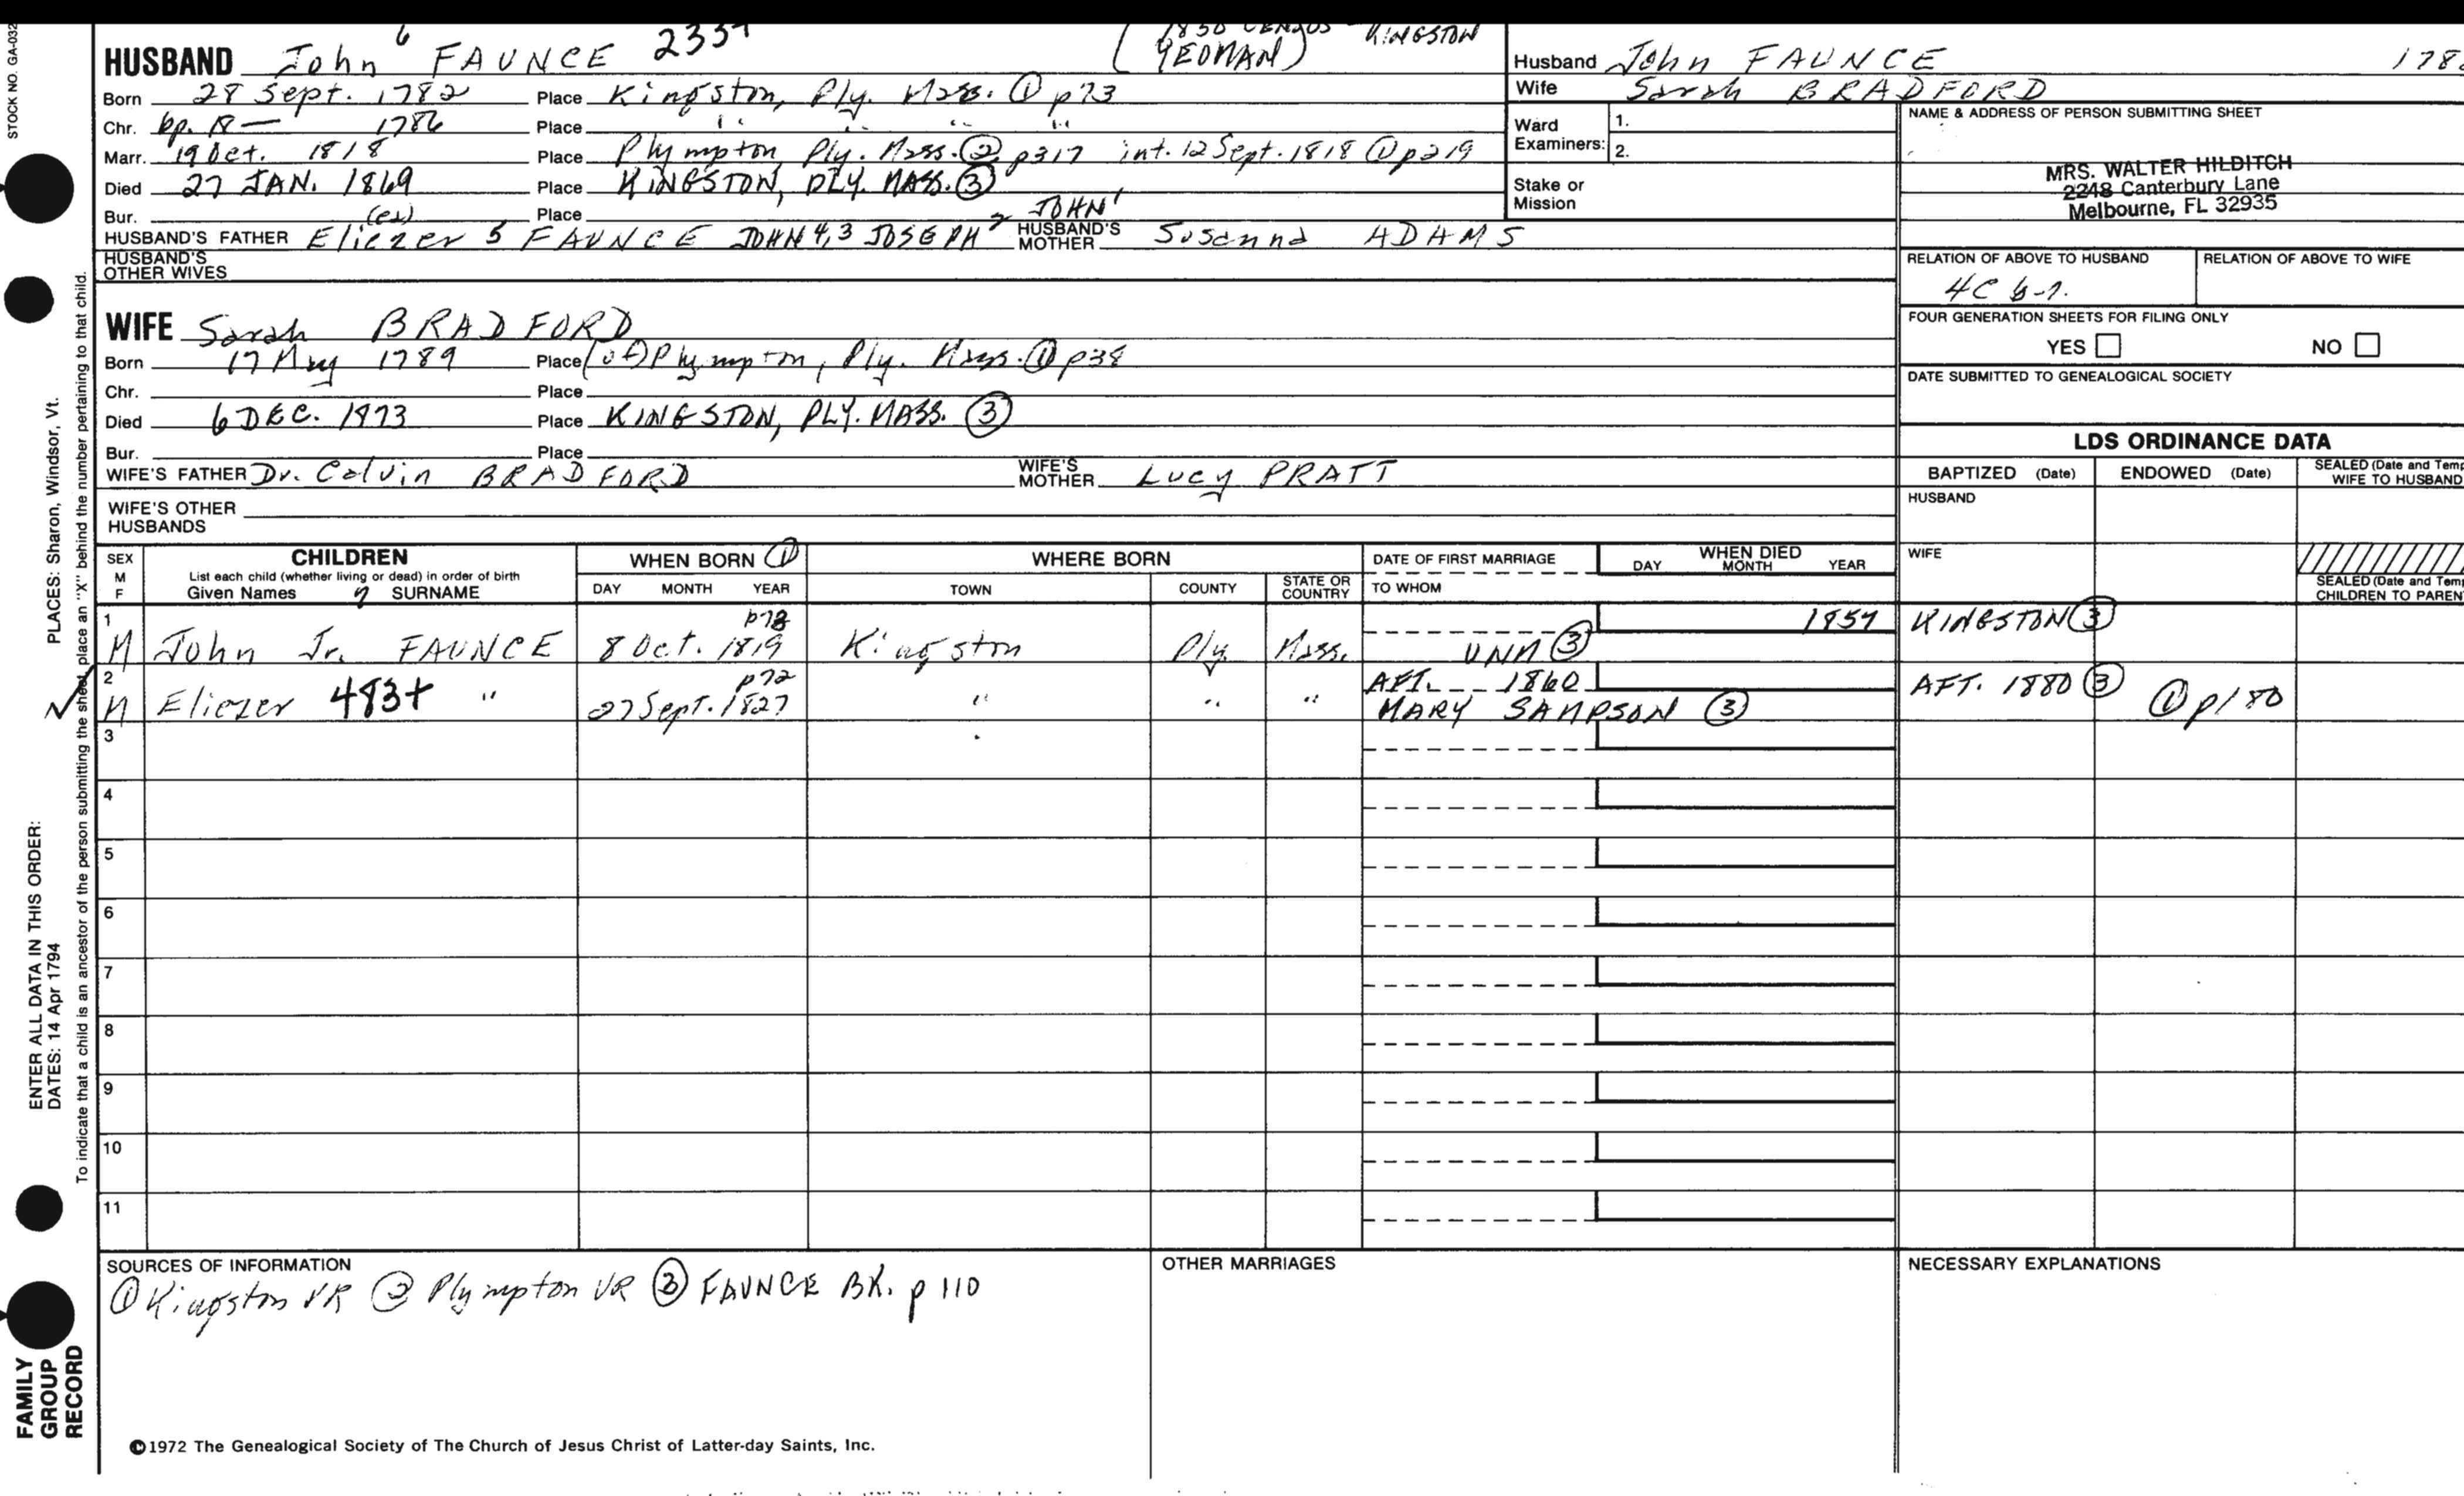 STOCK NO. GA-032
PLACES: Sharon, Windsor, Vt.
ENTER ALL DATA IN THIS ORDER:
DATES: 14 Apr 1794
To indicate that a child is an ancestor of the person submitting the sheet, place an "X" behind the number pertaining to that child.
FAMILY
GROUP
RECORD
1850 CENSUS KINGSTON
HUSBAND John 6 FAUNCE 233+ (YEOMAN)
Born 28 Sept. 1782 Place Kingston, Ply. Mass. ① p73
Chr. bp. 18 — 1786 Place " " " "
Marr. 19 Oct. 1818 Place Plympton, Ply. Mass. ② p317 int. 12 Sept. 1818 ① p219
Died 27 JAN. 1869 Place KINGSTON, PLY. MASS. ③
Bur. Place
HUSBAND'S FATHER Eliezer 5 FAUNCE JOHN 4,3 JOSEPH 2 JOHN 1 HUSBAND'S MOTHER Susanna ADAMS
HUSBAND'S
OTHER WIVES
WIFE Sarah BRADFORD
Born 17 May 1789 Place (of) Plympton, Ply. Mass. ① p38
Chr. Place
Died 6 DEC. 1873 Place KINGSTON, PLY. MASS. ③
Bur. Place
WIFE'S FATHER Dr. Calvin BRADFORD WIFE'S MOTHER Lucy PRATT
WIFE'S OTHER
HUSBANDS
Husband John FAUNCE 178
Wife Sarah BRADFORD
Ward
Examiners: 1.
2.
Stake or
Mission
NAME & ADDRESS OF PERSON SUBMITTING SHEET
MRS. WALTER HILDITCH
2248 Canterbury Lane
Melbourne, FL 32935
RELATION OF ABOVE TO HUSBAND RELATION OF ABOVE TO WIFE
4C 6-r.
FOUR GENERATION SHEETS FOR FILING ONLY
YES NO
DATE SUBMITTED TO GENEALOGICAL SOCIETY
LDS ORDINANCE DATA
BAPTIZED (Date) ENDOWED (Date) SEALED (Date and Temp
WIFE TO HUSBAND
HUSBAND
WIFE
SEALED (Date and Temp
CHILDREN TO PAREN
SEX
M
F
CHILDREN
List each child (whether living or dead) in order of birth
Given Names 7 SURNAME
WHEN BORN ①
DAY MONTH YEAR
WHERE BORN
TOWN COUNTY STATE OR COUNTRY
DATE OF FIRST MARRIAGE
TO WHOM
WHEN DIED
DAY MONTH YEAR
1 p73 1857 KINGSTON ③
M John Jr. FAUNCE 8 Oct. 1819 Kingston Ply. Mass. UNM ③
2 p72 AFT. 1860 AFT. 1880 ③ ① p180
M Eliezer 483+ " 27 Sept. 1827 " " " MARY SAMPSON ③
3
4
5
6
7
8
9
10
11
SOURCES OF INFORMATION
① Kingston VR ② Plympton VR ③ FAUNCE BK. p 110
OTHER MARRIAGES
NECESSARY EXPLANATIONS
©1972 The Genealogical Society of The Church of Jesus Christ of Latter-day Saints, Inc.